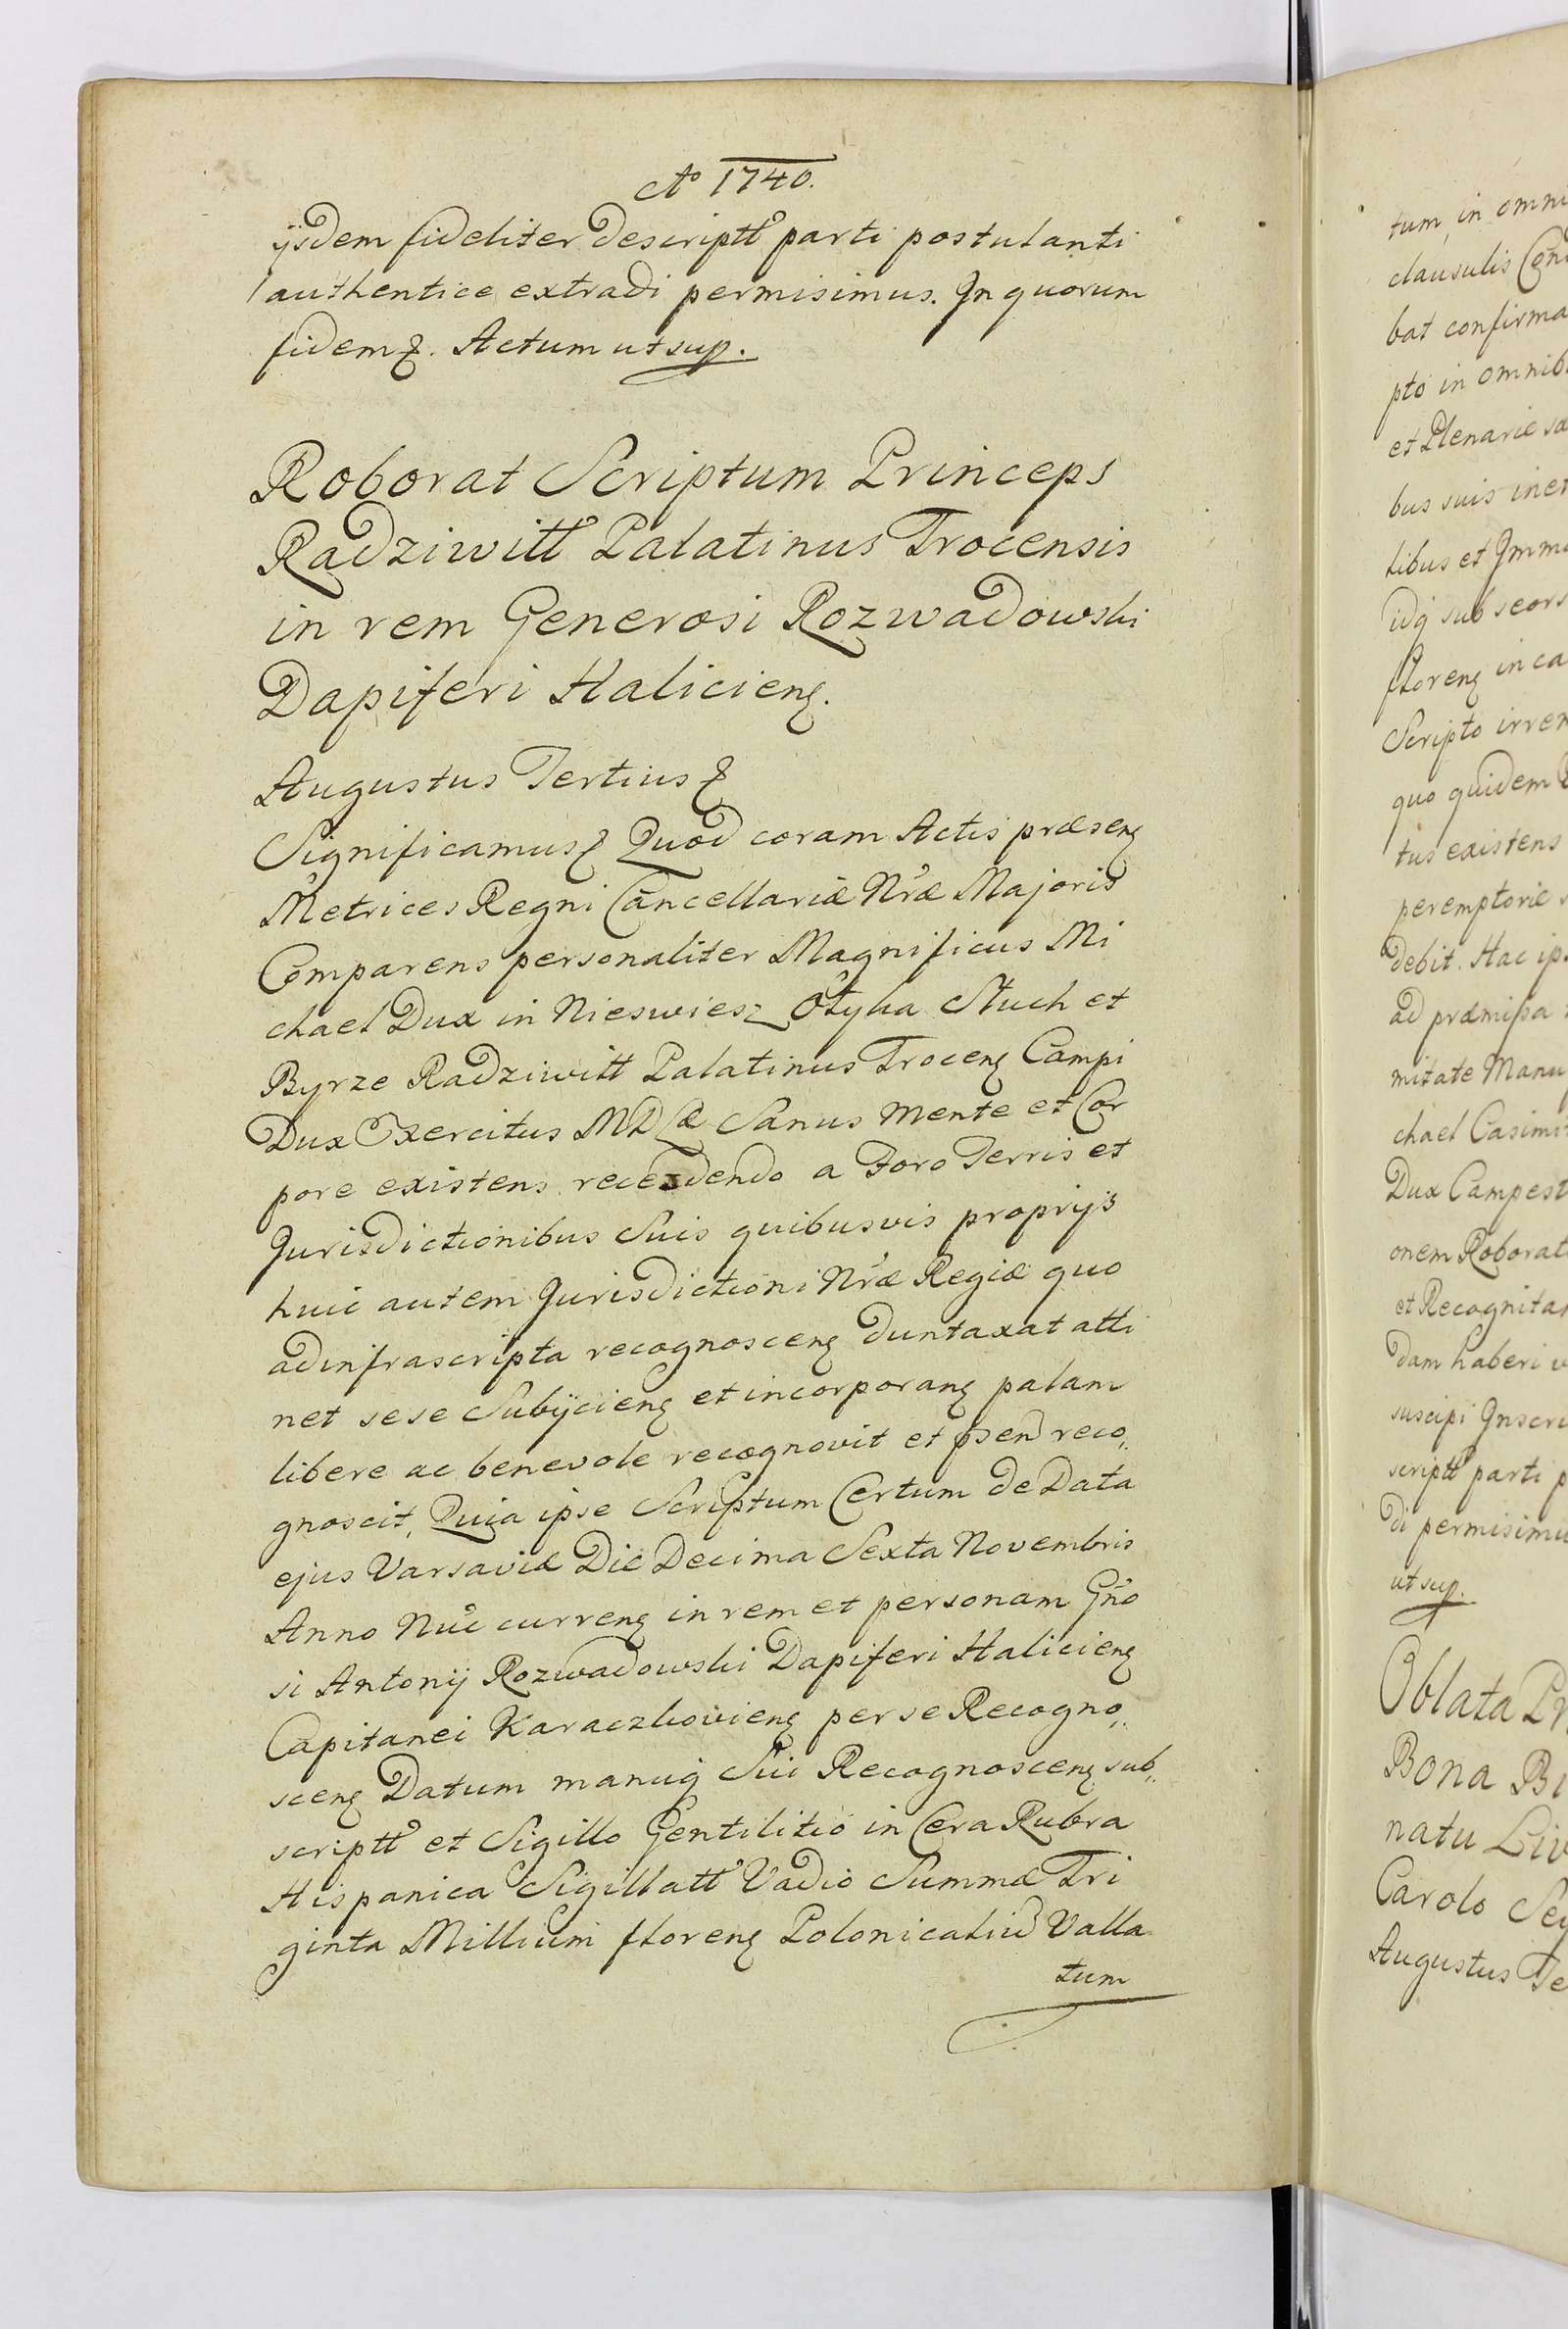 Aō 1740.
ijsdem fideliter descriptt parti postulanti
authentice extradi permisimus. In quorum
fidem &. Actum ut sup.
Roborat Scriptum Princeps
Radziwitt Palatinus Trocensis
in rem Generosi Rozwadowski
Dapiferi Halicieñ.
Augustus Tertius &
Significamus & Quod coram Actis præseñ
Metrices Regni Cancellariæ Nræ Majoris
Comparens personaliter Magnificus Mi
chael Dux in Nieswiesz Ołyka Słuck et
Byrze Radziwitt Palatinus Troceñ Campi
Dux Exercitus MDL Sanus mente et Cor
pore existens recedendo a Foro Terris et
Jurisdictionibus Suis quibusvis proprijs
huic autem Jurisdictioni Nræ Regiæ quo
ad infrascripta recognosceñ duntaxat atti
net sese Subijcieñ et incorporañ palam
libere ac benevole recognovit et pñsen reco„
gnoscit, Quia ipse Scriptum Certum de Data
ejus Varsaviæ Die Decima Sexta Novembris
Anno Nuc curreñ in rem et personam Gño
si Antonij Rozwadowski Dapiferi Halicieñ
Capitanei Karaczkovieñ per se Recogno„
sceñ Datum manuq Sui Recognosceñ sub„
scriptt et Sigillo Gentilitio in Cera Rubra
Hispanica Sigillatt Vadio Summæ Tri
ginta Millium floreñ Polonicaliu Valla
tum
tum, in omni
clausulis Con
bat confirma
pto in omnib
et Plenarie
bus suis
tibus et Imm
idq sub seors
floreñ in ca
Scripto irre
quo quidem
tus existens
peremptorie
debit. Hac ip
ad præmissa
mitate Manu
chael Casimi
Dux Campest
onem Roborat
et Recognita
dam haberi
suscipi Inscri
scriptt parti p
di permisimu
ut sup.
Oblata Pr
Bona B
natu Liv
Carolo Se
Augustus Te